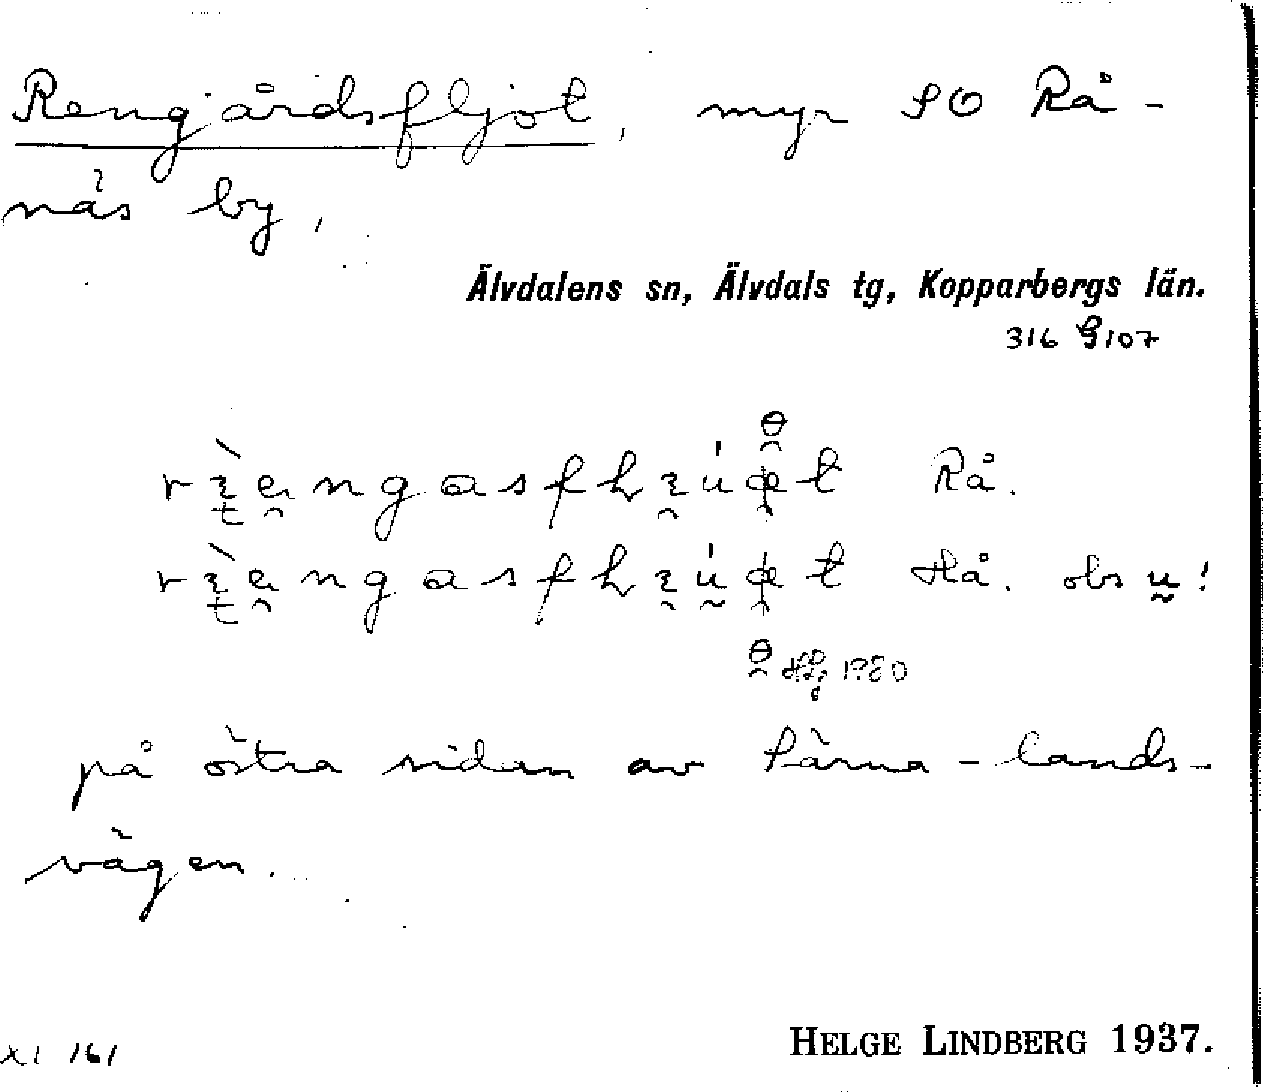 Rengårdsfljot, myr SO Rå-
näs by,
Älvdalens sn, Älvdals tg, Kopparbergs län.
316 G107
Rå.
obs u!
1980
på östra sidan av Särna-lands-
vägen.
XI 161
HELGE LINDBERG 1937.